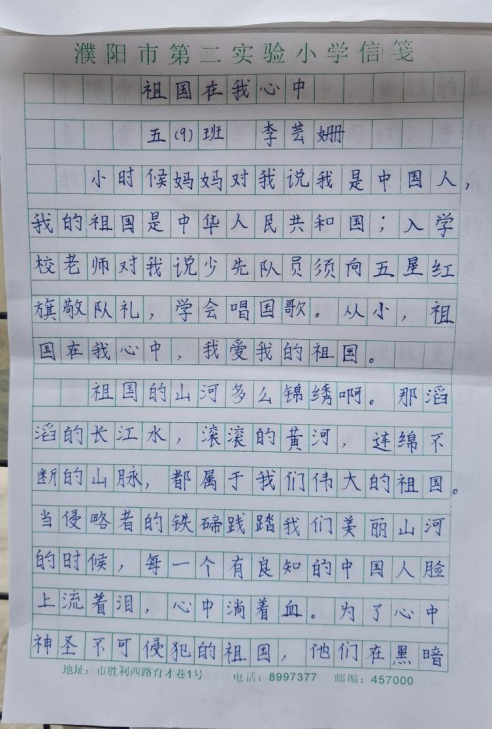 濮阳市第二实验小学信笺
祖国在我心中
五(9)班 李芸姗
小时候妈妈对我说我是中国人,
我的祖国是中华人民共和国;入学
校老师对我说少先队员须向五星红
旗敬队礼,学会唱国歌。从小,祖
国在我心中,我爱我的祖国。
祖国的山河多么锦绣啊。那滔
滔的长江水,滚滚的黄河,连绵不
断的山脉,都属于我们伟大的祖国。
当侵略者的铁碲践踏我们美丽山河
的时候,每一个有良知的中国人脸
上流着泪,心中淌着血。为了心中
神圣不可侵犯的祖国,他们在黑暗
地址:市胜利西路育才巷1号 电话:8997377 邮编:457000